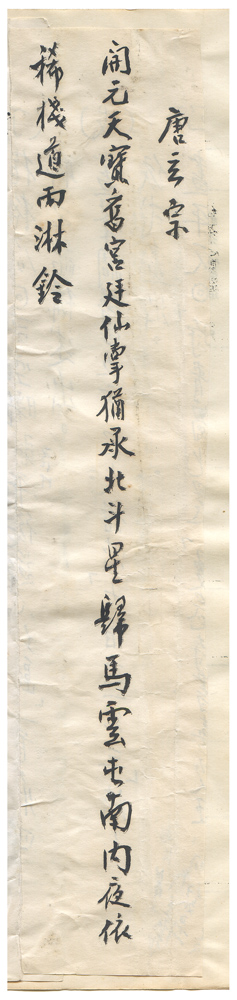 唐玄宗
開元天寶舊宮廷仙掌猶承北斗星歸馬雲屯南內夜依
稀棧道雨淋鈴